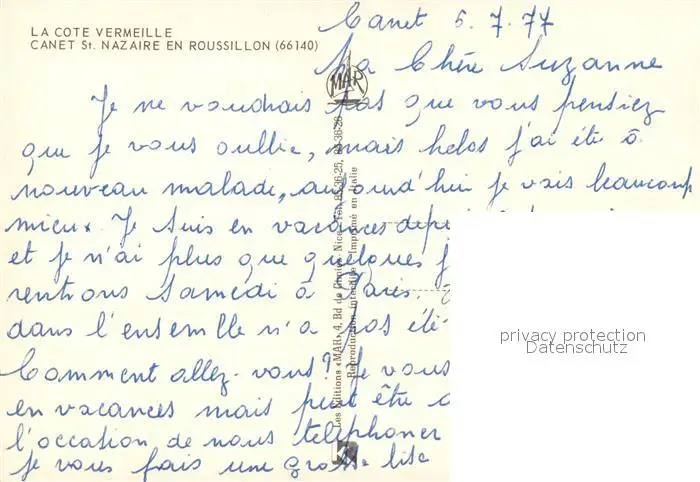 LA COTE VERMEILLE
CANET St. NAZAIRE EN ROUSSILLON (66140)
Canet 5.7.77
Ma Chère Suzanne
MAR
Je ne voudrais pas que vous pensiez
que je vous oublie, mais helos j'ai été à
nouveau malade, aujourd'hui je vais beaucoup
mieux. Je suis en vacances depuis
et je n'ai plus que quelques j
rentrons samedi à Paris.
dans l'ensemble n'a pas été
Comment allez-vous? Je vous
en vacances mais peut être
l'occation de nous telephoner
je vous fais une grosse bise
Les Editions «MAR», 4, Bd de Cimiez, Nice - Tél. 85-36-25, 85-36-26
Reproduction interdite - Imprimé en Italie
privacy protection
Datenschutz